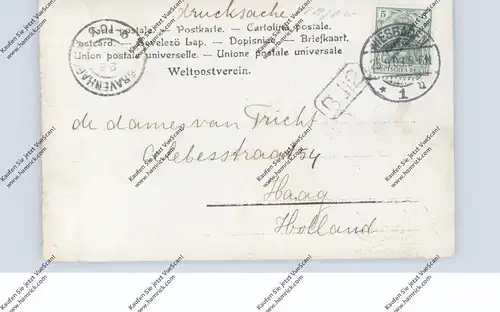 Drucksache
Carte postale. — Postkarte. — Cartolina postale.
Postcard. — Levelező Lap. — Dopisnice. — Briefkaart.
Union postale universelle. — Unione postale universale
Weltpostverein.
GRAVENHAG
5 5
WIESBADEN
DEUTSCHES REICH
* 1
B 112
de dames van Tricht
Celebesstraat 54
Haag
Holland
Kaufen Sie jetzt VueScan!
www.hamrick.com